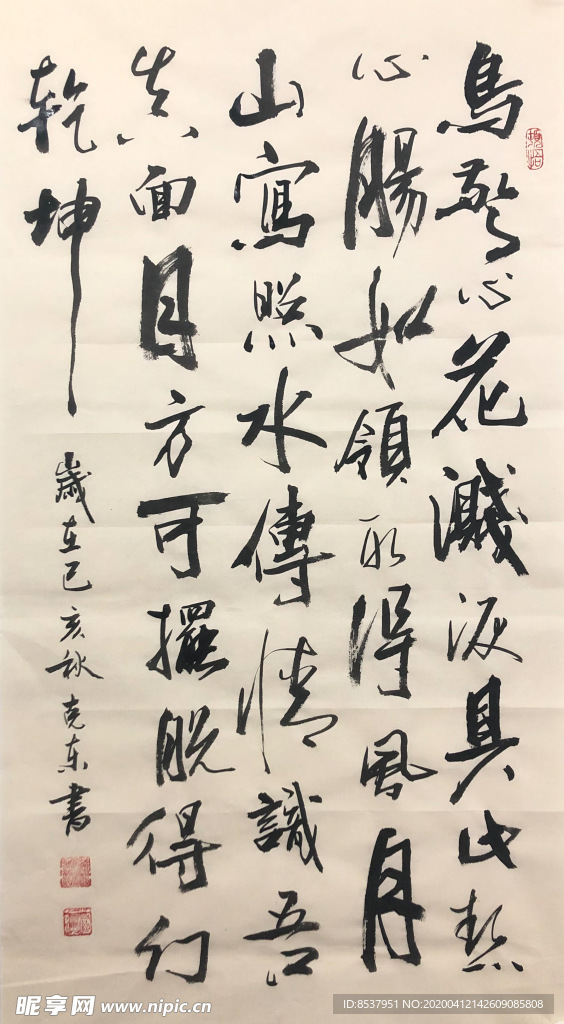 鳥驚心花濺淚具此熱
心腸如領取得風月
山寫照水傳情識吾
真面目方可擺脫得幻
乾坤
歲在己亥秋克东書
昵享网 www.nipic.cn
ID:8537951 NO:20200412142609085808